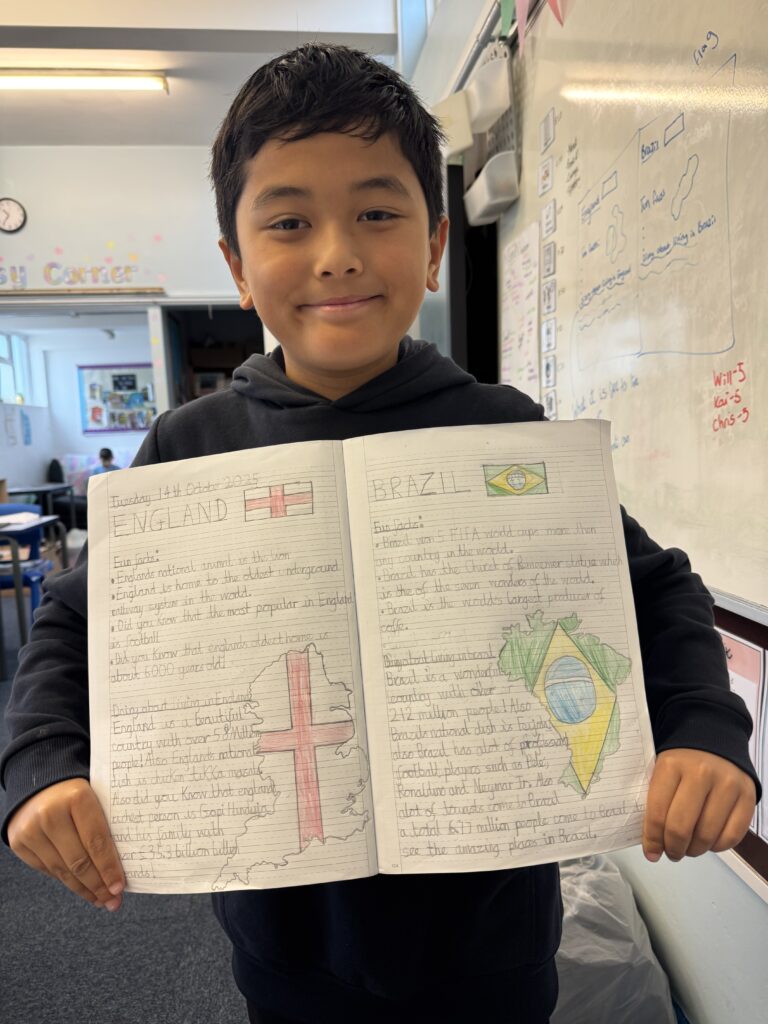 Tuesday 14th October 2025
ENGLAND
Fun facts:
• Englands national animal is the lion
• England is home to the oldest underground
railway system in the world.
• Did you know that the most popular in England
is football
• Did you know that englands oldest home is
about 6000 years old!
about living in England
England is a beautiful
country with over 5 Million
people! Also Englands national
dish is chicken tikka masala
Also did you know that england
richest person is Gopi Hinduja
and his family with
over £35.3 billion
BRAZIL
Fun facts:
• Brazil won 5 FIFA world cups more then
any country in the world.
• Brazil has the Christ of Reedemer statue which
is the of the seven wonders of the world.
• Brazil is the world's largest producer of
coffe.
about living in brazil
Brazil is a wonderful
country with over
212 million people! Also
Brazils national dish is
also Brazil has alot of
football players such as Pele,
Ronaldino and Neymar Jr. Also
alot of tourists come in Brazil
a total 6.77 million people come to Brazil to
see the amazing places in Brazil.
sy Corner
flag
England
Brazil
Fun Facts
living in England
Diary about living in Brazil
What it is
Will-5
Kai-5
Chris-5